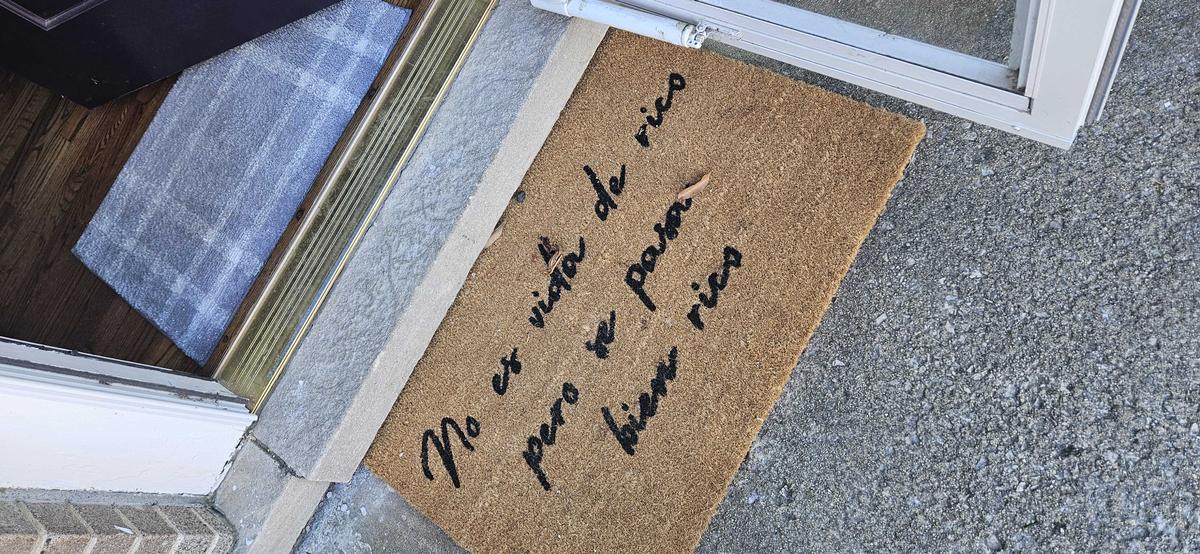 No es vida de rico
pero se pasa
bien rico